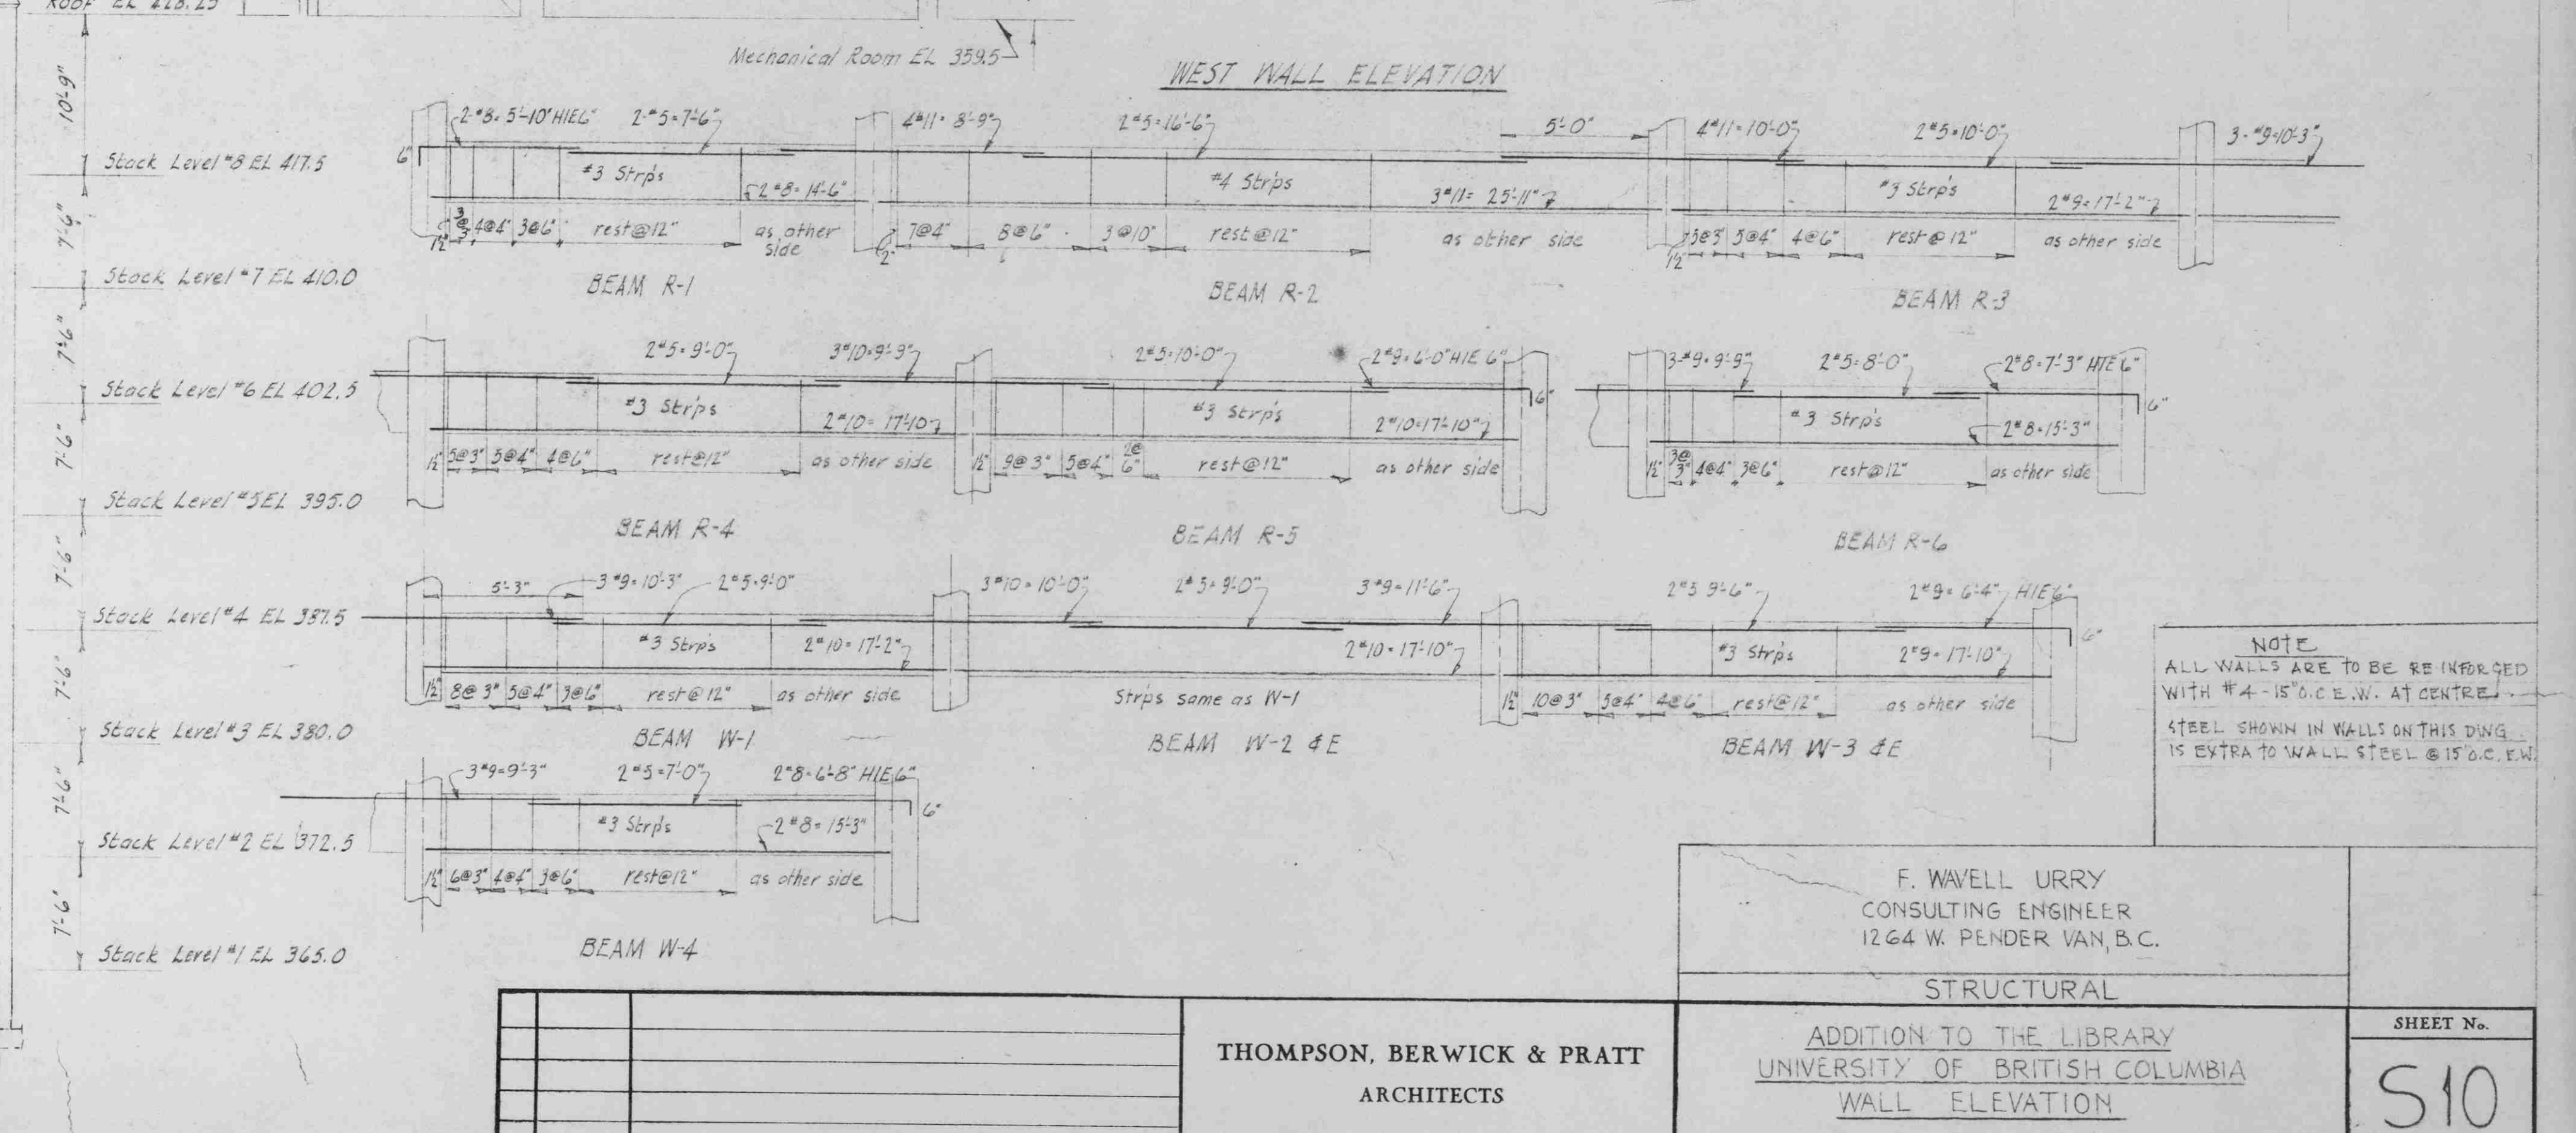 ROOF EL 428.25
10'-9"
Mechanical Room EL 359.5
WEST WALL ELEVATION
Stack Level #8 EL 417.5
7'-6"
Stack Level #7 EL 410.0
7'-6"
Stack Level #6 EL 402.5
7'-6"
Stack Level #5 EL 395.0
7'-6"
Stack Level #4 EL 387.5
7'-6"
Stack Level #3 EL 380.0
7'-6"
Stack Level #2 EL 372.5
7'-6"
Stack Level #1 EL 365.0
2-#8=5'-10" HIE6"
2-#5=7'-6"
6"
#3 Strp's
2#8=14'-6"
1½" 3@3" 4@4" 3@6" rest@12" as other side
BEAM R-1
4#11=8'-9"
2#5=16'-6"
5'-0"
#4 Strp's
3#11=25'-11"
2" 7@4" 8@6" 3@10" rest@12" as other side
BEAM R-2
4#11=10'-0"
2#5=10'-0"
3-#9=10'-3"
#3 Strp's
2#9=17'-2"
1½" 5@3" 5@4" 4@6" rest@12" as other side
BEAM R-3
2#5=9'-0"
3#10=9'-9"
#3 Strp's
2#10=17'-10"
1½" 5@3" 5@4" 4@6" rest@12" as other side
BEAM R-4
2#5=10'-0"
2#9=6'-0" HIE 6"
6"
#3 Strp's
2#10=17'-10"
1½" 9@3" 5@4" 2@6" rest@12" as other side
BEAM R-5
3-#9=9'-9"
2#5=8'-0"
2#8=7'-3" HIE 6"
6"
#3 Strp's
2#8=15'-3"
1½" 3@3" 4@4" 3@6" rest@12" as other side
BEAM R-6
5'-3"
3#9=10'-3"
2#5=9'-0"
#3 Strp's
2#10=17'-2"
1½" 8@3" 5@4" 3@6" rest@12" as other side
BEAM W-1
3#10=10'-0"
2#5=9'-0"
3#9=11'-6"
2#10=17'-10"
Strps same as W-1
BEAM W-2 & E
2#5 9'-6"
2#9=6'-4" HIE6"
6"
#3 Strp's
2#9=17'-10"
1½" 10@3" 5@4" 4@6" rest@12" as other side
BEAM W-3 & E
3#9=9'-3"
2#5=7'-0"
2#8=6'-8" HIE 6"
6"
#3 Strp's
2#8=15'-3"
1½" 6@3" 4@4" 3@6" rest@12" as other side
BEAM W-4
NOTE
ALL WALLS ARE TO BE REINFORGED
WITH #4-15" O.C. E.W. AT CENTRE.
STEEL SHOWN IN WALLS ON THIS DWG
IS EXTRA TO WALL STEEL @ 15" O.C. E.W.
F. WAVELL URRY
CONSULTING ENGINEER
1264 W. PENDER VAN, B.C.
STRUCTURAL
THOMPSON, BERWICK & PRATT
ARCHITECTS
ADDITION TO THE LIBRARY
UNIVERSITY OF BRITISH COLUMBIA
WALL ELEVATION
SHEET No.
S10